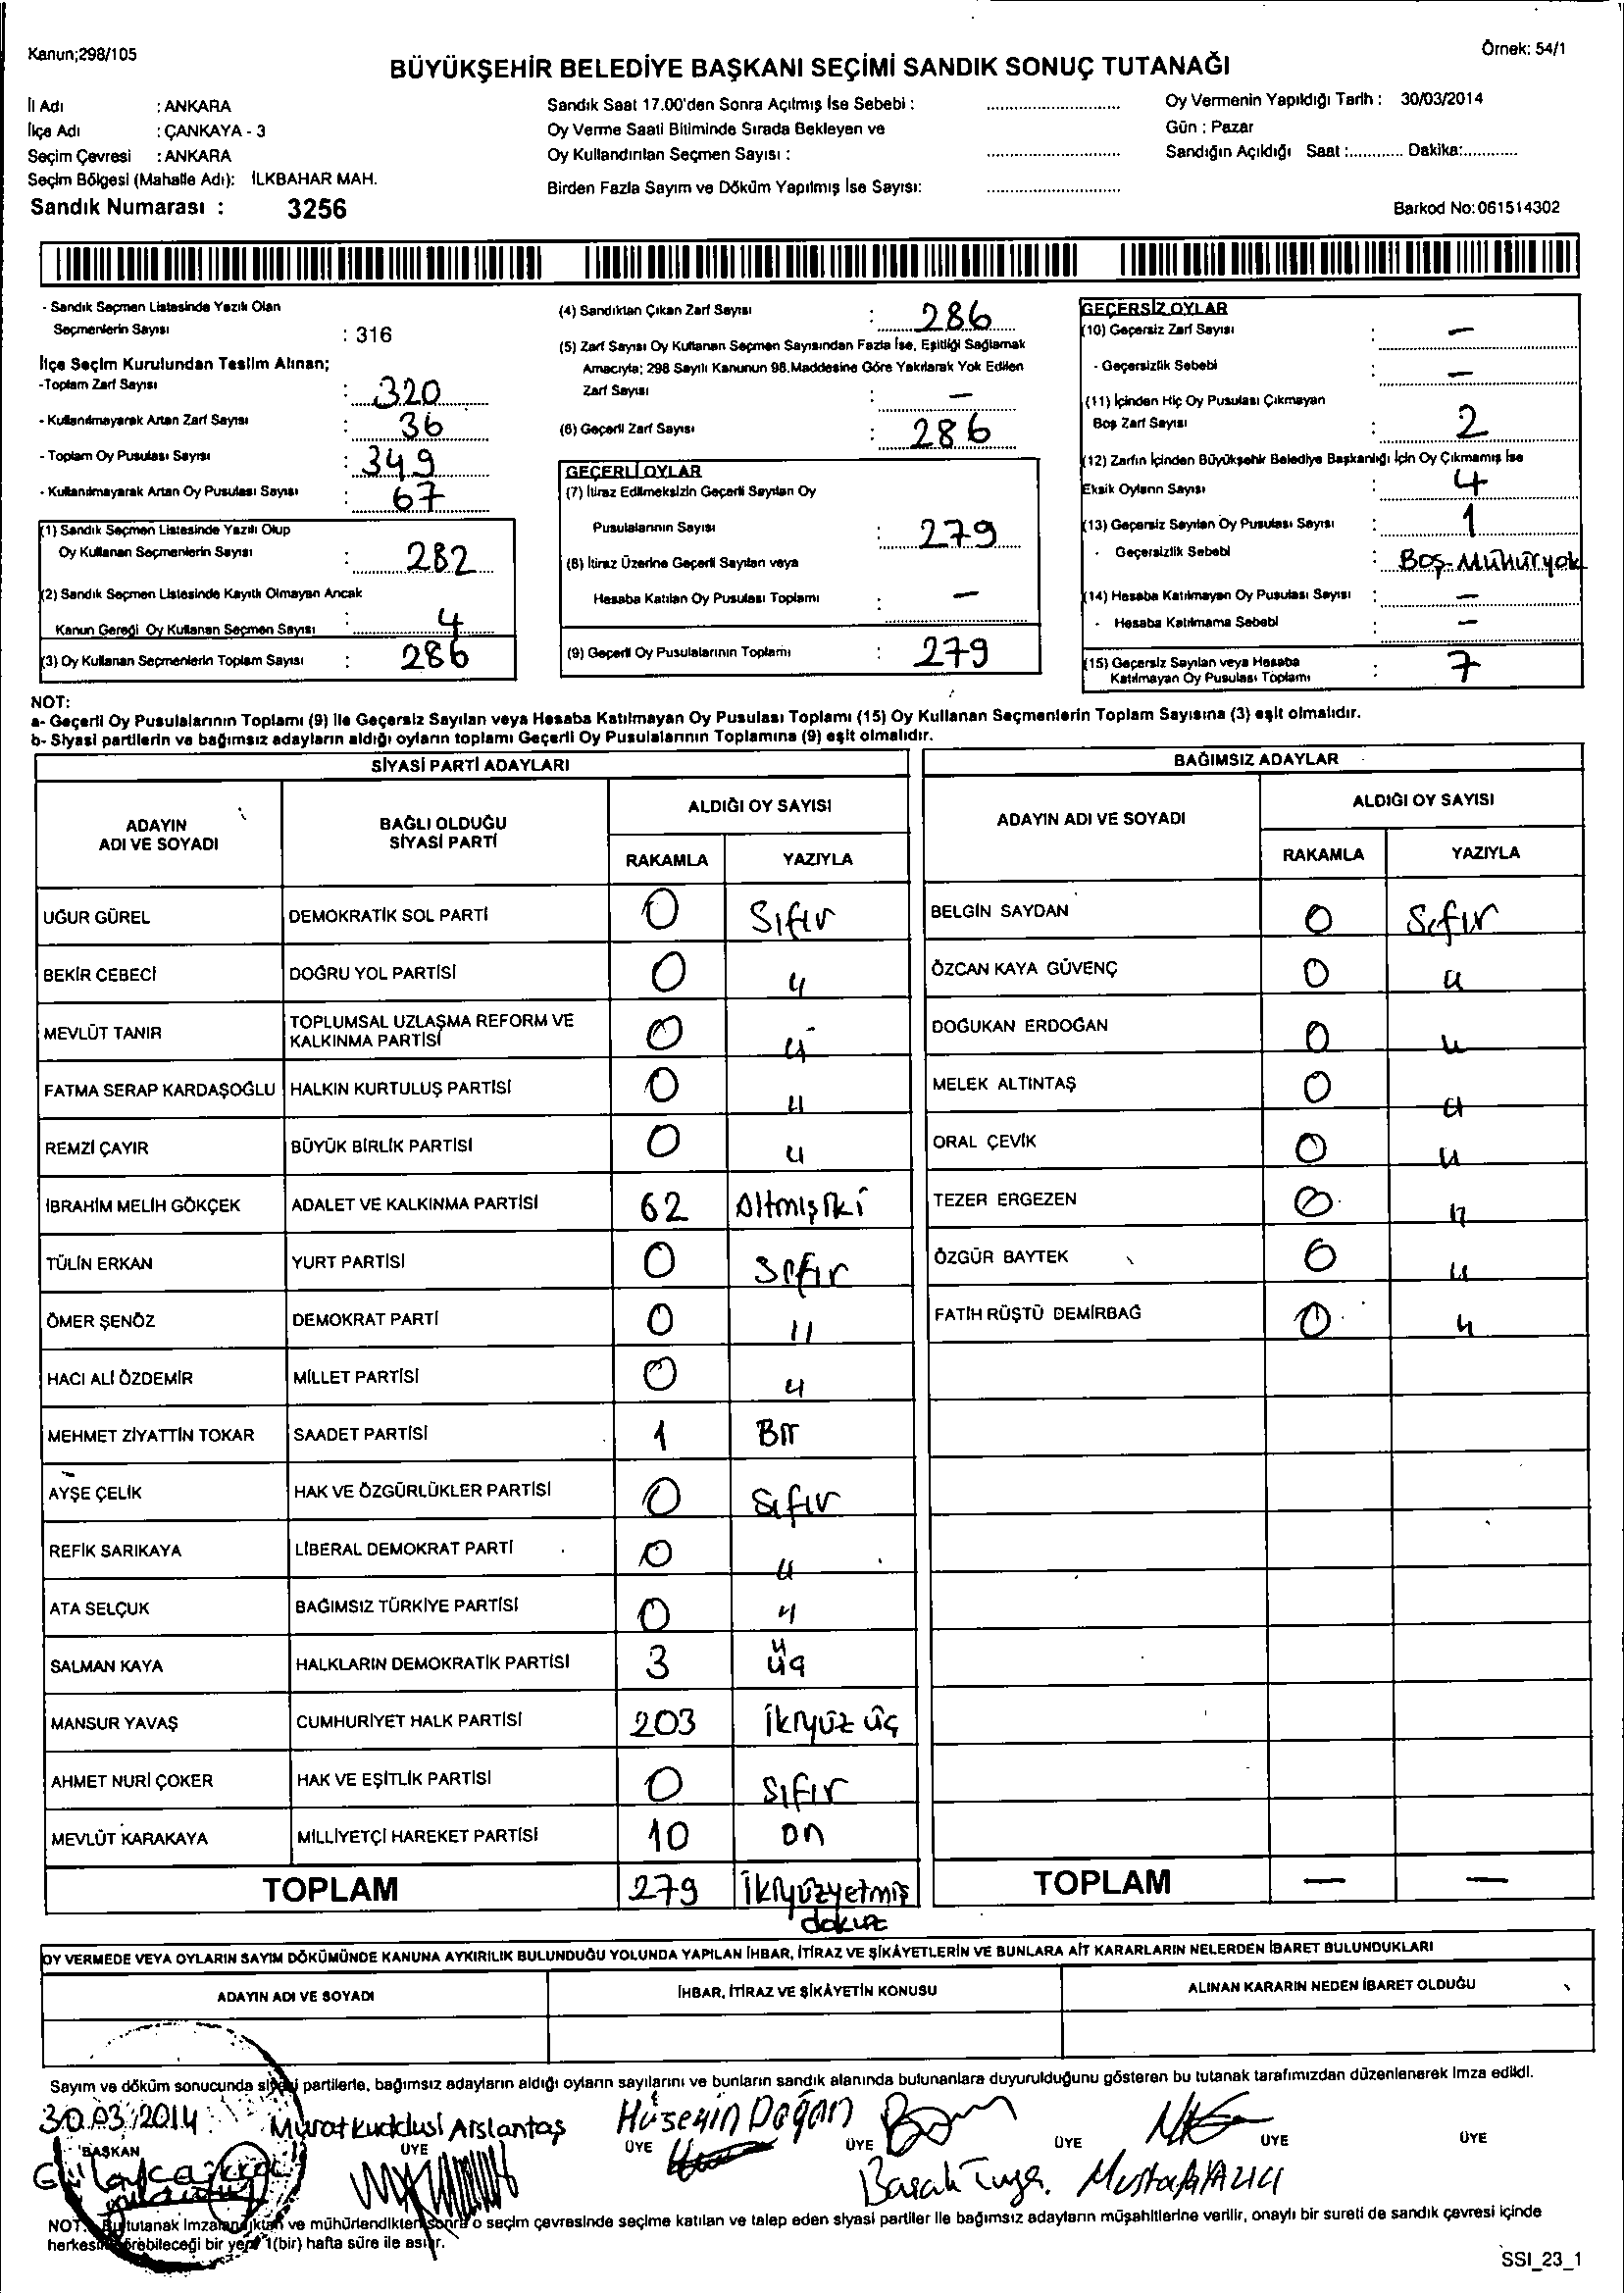 Kanun;298/105
Örnek: 54/1
BÜYÜKŞEHİR BELEDİYE BAŞKANI SEÇİMİ SANDIK SONUÇ TUTANAĞI
İl Adı : ANKARA
İlçe Adı : ÇANKAYA - 3
Seçim Çevresi : ANKARA
Seçim Bölgesi (Mahalle Adı): İLKBAHAR MAH.
Sandık Numarası : 3256
Sandık Saat 17.00'den Sonra Açılmış İse Sebebi :
Oy Verme Saati Bitiminde Sırada Bekleyen ve
Oy Kullandırılan Seçmen Sayısı :
Birden Fazla Sayım ve Döküm Yapılmış İse Sayısı:
Oy Vermenin Yapıldığı Tarih : 30/03/2014
Gün : Pazar
Sandığın Açıldığı Saat :............ Dakika:............
Barkod No:061514302
- Sandık Seçmen Listesinde Yazılı Olan
Seçmenlerin Sayısı : 316
İlçe Seçim Kurulundan Teslim Alınan;
-Toplam Zarf Sayısı : 320
- Kullanılmayarak Artan Zarf Sayısı : 36
- Toplam Oy Pusulası Sayısı : 349
- Kullanılmayarak Artan Oy Pusulası Sayısı : 67
(1) Sandık Seçmen Listesinde Yazılı Olup
Oy Kullanan Seçmenlerin Sayısı : 282
(2) Sandık Seçmen Listesinde Kayıtlı Olmayan Ancak
Kanun Gereği Oy Kullanan Seçmen Sayısı : 4
(3) Oy Kullanan Seçmenlerin Toplam Sayısı : 286
(4) Sandıktan Çıkan Zarf Sayısı : 286
(5) Zarf Sayısı Oy Kullanan Seçmen Sayısından Fazla İse, Eşitliği Sağlamak
Amacıyla; 298 Sayılı Kanunun 98.Maddesine Göre Yakılarak Yok Edilen
Zarf Sayısı : —
(6) Geçerli Zarf Sayısı : 286
GEÇERLİ OYLAR
(7) İtiraz Edilmeksizin Geçerli Sayılan Oy
Pusulalarının Sayısı : 279
(8) İtiraz Üzerine Geçerli Sayılan veya
Hesaba Katılan Oy Pusulası Toplamı : —
(9) Geçerli Oy Pusulalarının Toplamı : 279
GEÇERSİZ OYLAR
(10) Geçersiz Zarf Sayısı : —
- Geçersizlik Sebebi : —
(11) İçinden Hiç Oy Pusulası Çıkmayan
Boş Zarf Sayısı : 2
(12) Zarfın İçinden Büyükşehir Belediye Başkanlığı İçin Oy Çıkmamış İse
Eksik Oyların Sayısı : 4
(13) Geçersiz Sayılan Oy Pusulası Sayısı : 1
- Geçersizlik Sebebi : Boş-Mühüryok
(14) Hesaba Katılmayan Oy Pusulası Sayısı : —
- Hesaba Katılmama Sebebi : —
(15) Geçersiz Sayılan veya Hesaba
Katılmayan Oy Pusulası Toplamı : 7
NOT:
a- Geçerli Oy Pusulalarının Toplamı (9) ile Geçersiz Sayılan veya Hesaba Katılmayan Oy Pusulası Toplamı (15) Oy Kullanan Seçmenlerin Toplam Sayısına (3) eşit olmalıdır.
b- Siyasi partilerin ve bağımsız adayların aldığı oyların toplamı Geçerli Oy Pusulalarının Toplamına (9) eşit olmalıdır.
SİYASİ PARTİ ADAYLARI
ADAYIN ADI VE SOYADI BAĞLI OLDUĞU SİYASİ PARTİ ALDIĞI OY SAYISI
RAKAMLA YAZIYLA
UĞUR GÜREL DEMOKRATİK SOL PARTİ 0 Sıfır
BEKİR CEBECİ DOĞRU YOL PARTİSİ 0 "
MEVLÜT TANIR TOPLUMSAL UZLAŞMA REFORM VE KALKINMA PARTİSİ 0 "
FATMA SERAP KARDAŞOĞLU HALKIN KURTULUŞ PARTİSİ 0 "
REMZİ ÇAYIR BÜYÜK BİRLİK PARTİSİ 0 "
İBRAHİM MELİH GÖKÇEK ADALET VE KALKINMA PARTİSİ 62 Altmışiki
TÜLİN ERKAN YURT PARTİSİ 0 Sıfır
ÖMER ŞENÖZ DEMOKRAT PARTİ 0 "
HACI ALİ ÖZDEMİR MİLLET PARTİSİ 0 "
MEHMET ZİYATTİN TOKAR SAADET PARTİSİ 1 Bir
AYŞE ÇELİK HAK VE ÖZGÜRLÜKLER PARTİSİ 0 Sıfır
REFİK SARIKAYA LİBERAL DEMOKRAT PARTİ 0 "
ATA SELÇUK BAĞIMSIZ TÜRKİYE PARTİSİ 0 "
SALMAN KAYA HALKLARIN DEMOKRATİK PARTİSİ 3 üç
MANSUR YAVAŞ CUMHURİYET HALK PARTİSİ 203 İkiyüz üç
AHMET NURİ ÇOKER HAK VE EŞİTLİK PARTİSİ 0 Sıfır
MEVLÜT KARAKAYA MİLLİYETÇİ HAREKET PARTİSİ 10 on
TOPLAM 279 İkiyüzyetmiş dokuz
BAĞIMSIZ ADAYLAR
ADAYIN ADI VE SOYADI ALDIĞI OY SAYISI
RAKAMLA YAZIYLA
BELGİN SAYDAN 0 Sıfır
ÖZCAN KAYA GÜVENÇ 0 "
DOĞUKAN ERDOĞAN 0 "
MELEK ALTINTAŞ 0 "
ORAL ÇEVİK 0 "
TEZER ERGEZEN 0 "
ÖZGÜR BAYTEK 0 "
FATİH RÜŞTÜ DEMİRBAĞ 0 "
TOPLAM — —
OY VERMEDE VEYA OYLARIN SAYIM DÖKÜMÜNDE KANUNA AYKIRILIK BULUNDUĞU YOLUNDA YAPILAN İHBAR, İTİRAZ VE ŞİKÂYETLERİN VE BUNLARA AİT KARARLARIN NELERDEN İBARET BULUNDUKLARI
ADAYIN ADI VE SOYADI İHBAR, İTİRAZ VE ŞİKÂYETİN KONUSU ALINAN KARARIN NEDEN İBARET OLDUĞU
Sayım ve döküm sonucunda siyasi partilerle, bağımsız adayların aldığı oyların sayılarını ve bunların sandık alanında bulunanlara duyurulduğunu gösteren bu tutanak tarafımızdan düzenlenerek imza edildi.
30.03.2014 Murat Kuddusi Arslantaş Hüseyin Doğan
BAŞKAN ÜYE ÜYE ÜYE ÜYE ÜYE ÜYE
Başak Tuğa. Mustafa YAZICI
NOT: Bu tutanak imzalandıktan ve mühürlendikten sonra o seçim çevresinde seçime katılan ve talep eden siyasi partiler ile bağımsız adayların müşahitlerine verilir, onaylı bir sureti de sandık çevresi içinde
herkesin görebileceği bir yere 1(bir) hafta süre ile asılır.
SSI_23_1